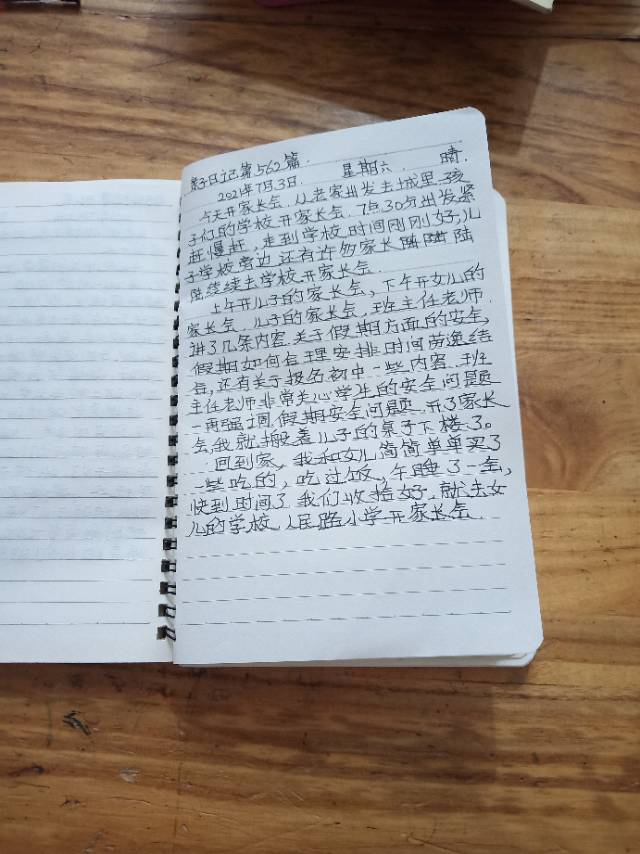 亲子日记第562篇.
2021年7月3日. 星期六 晴.
今天开家长会.从老家出发去城里孩
子们的学校开家长会.7点30分出发紧
赶慢赶,走到学校时间刚刚好,儿
子学校旁边还有许多家长陆陆
陆续续去学校开家长会.
上午开儿子的家长会,下午开女儿的
家长会.儿子的家长会,班主任老师.
讲了几条内容.关于假期方面的安全,
假期如何合理安排时间劳逸结
合,还有关于报名初中一些内容.班
主任老师非常关心学生的安全问题
一再强调假期安全问题.开了家长
会,我就搬着儿子的桌子下楼了。
回到家,我和女儿简简单单买了
一些吃的,吃过饭,午睡了一会,
快到时间了我们收拾好.就去女
儿的学校人民路小学开家长会.